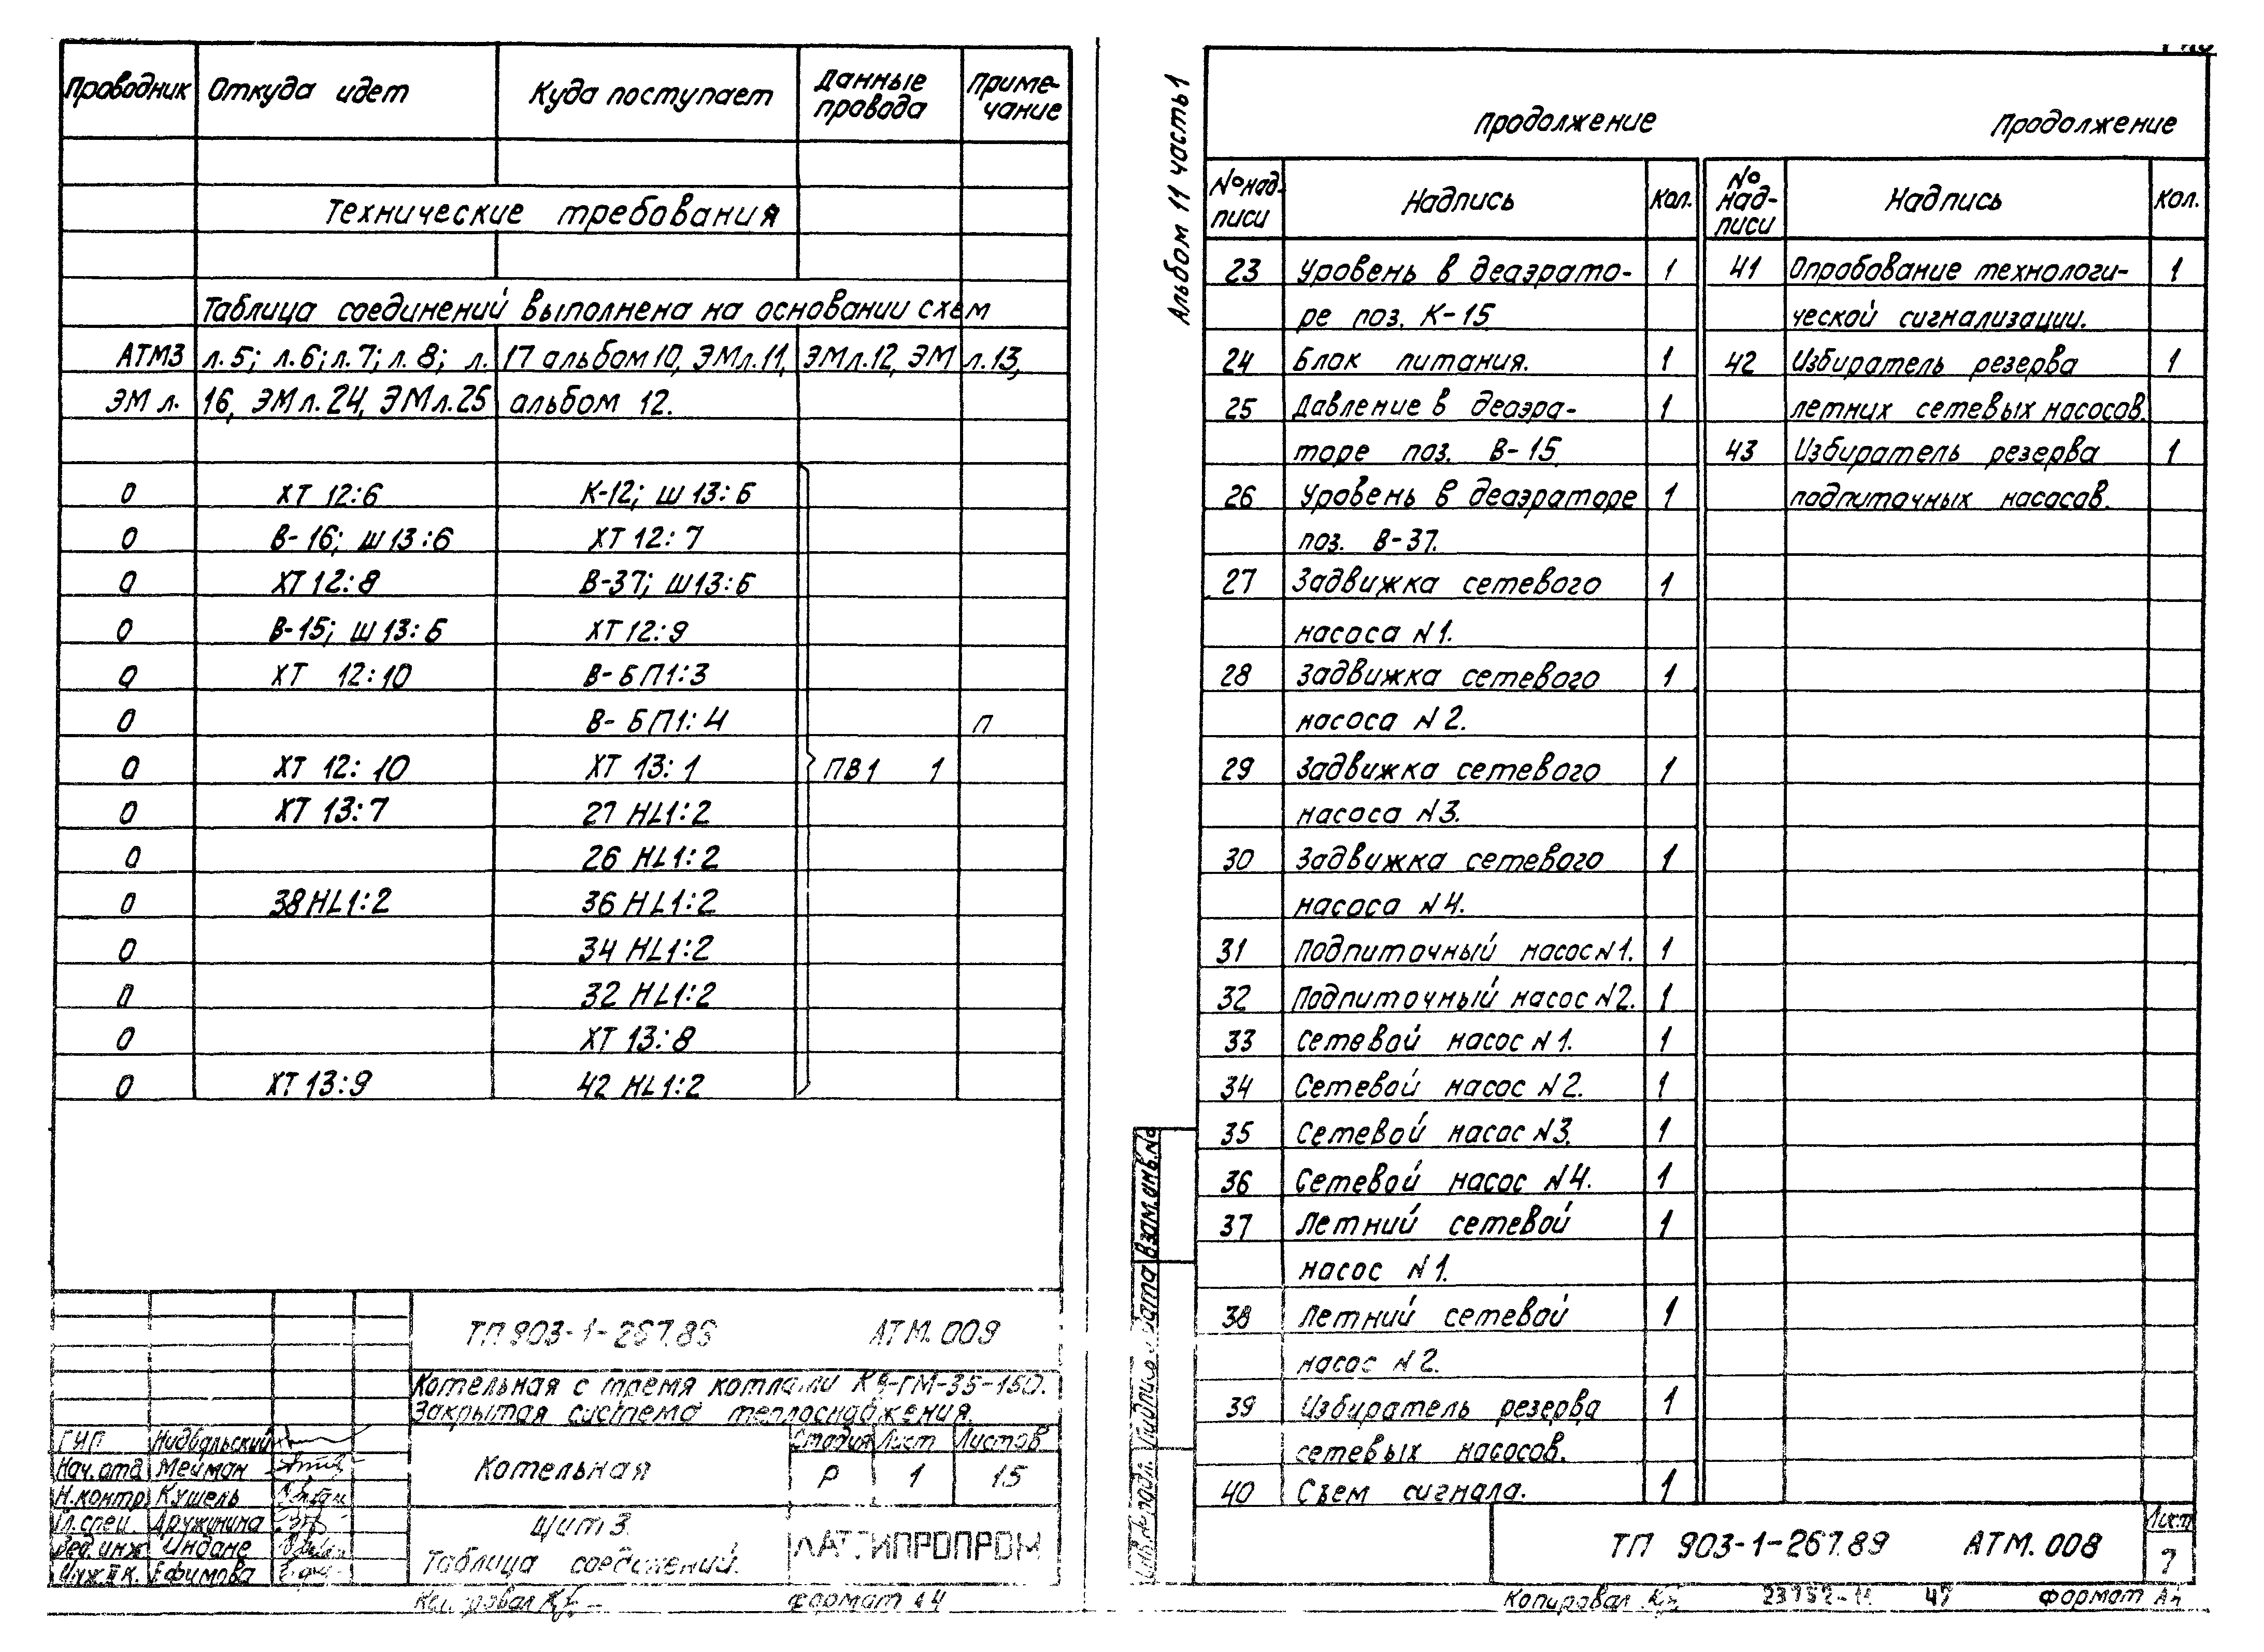 Проводник Откуда идет Куда поступает Данные провода Приме-чание
Технические требования
Таблица соединений выполнена на основании схем
АТМ3 л.5; л.6; л.7; л.8; л. 17 альбом 10, ЭМ л.11, ЭМ л.12, ЭМ л.13,
ЭМ л. 16, ЭМ л.24, ЭМ л.25 альбом 12.
0 ХТ 12:6 К-12; Ш13:Б
0 В-16; Ш13:6 ХТ 12:7
0 ХТ 12:8 В-37; Ш13:Б
0 В-15; Ш13:Б ХТ 12:9
0 ХТ 12:10 В-БП1:3
0 В-БП1:4 п
0 ХТ 12:10 ХТ 13:1 ПВ1 1
0 ХТ 13:7 27 HL1:2
0 26 HL1:2
0 38 HL1:2 36 HL1:2
0 34 HL1:2
0 32 HL1:2
0 ХТ 13:8
0 ХТ 13:9 42 HL1:2
ТП 903-1-267.89 АТМ.009
Котельная с тремя котлами КЕ-ГМ-35-150.
Закрытая система теплоснабжения.
ГИП Нидбальский
Нач. отд Мейман
Н.контр Кушель
Гл.спец. Дружинина
Вед.инж Индане
Инж II к. Ефимова
Котельная
Стадия Лист Листов
Р 1 15
Щит 3.
Таблица соединений.
ЛАТГИПРОПРОМ
Копировал
Формат А4
Альбом 11 часть 1
продолжение
№ над-писи Надпись Кол.
23 Уровень в деаэрато- 1
ре поз. К-15
24 Блок питания. 1
25 Давление в деаэра- 1
торе поз. В-15
26 Уровень в деаэраторе 1
поз. В-37.
27 Задвижка сетевого 1
насоса N1.
28 Задвижка сетевого 1
насоса N2.
29 Задвижка сетевого 1
насоса N3.
30 Задвижка сетевого 1
насоса N4.
31 Подпиточный насос N1. 1
32 Подпиточный насос N2. 1
33 Сетевой насос N1. 1
34 Сетевой насос N2. 1
35 Сетевой насос N3. 1
36 Сетевой насос N4. 1
37 Летний сетевой 1
насос N1.
38 Летний сетевой 1
насос N2.
39 Избиратель резерва 1
сетевых насосов.
40 Съем сигнала. 1
Продолжение
№ над-писи Надпись Кол.
41 Опробование технологи- 1
ческой сигнализации.
42 Избиратель резерва 1
летних сетевых насосов.
43 Избиратель резерва 1
подпиточных насосов.
Взам.инв.№
Инв.№ подл. Подпись и дата
ТП 903-1-267.89 АТМ.008
Лист
7
Копировал
23752-11 47 Формат А4